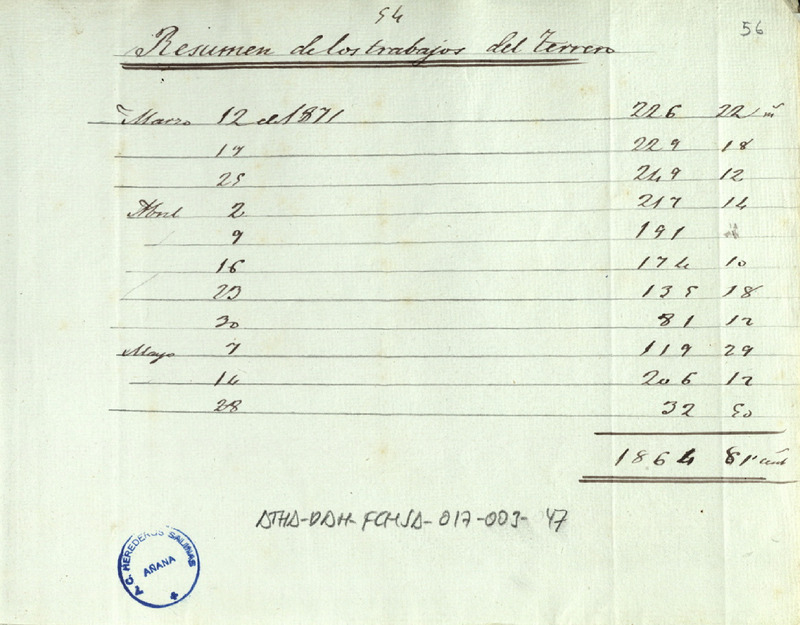 54
56
Resumen de los trabajos del Terrero
Marzo 12 de 1871 226 22 m
19 229 18
25 249 12
Abril 2 217 14
9 191
16 174 10
23 135 18
30 81 12
Mayo 7 119 29
14 206 12
28 32 50
1864 81 cent
ATHA-DAH-FCHSA-017-003-47
A.C. HEREDEROS SALINAS
AÑANA